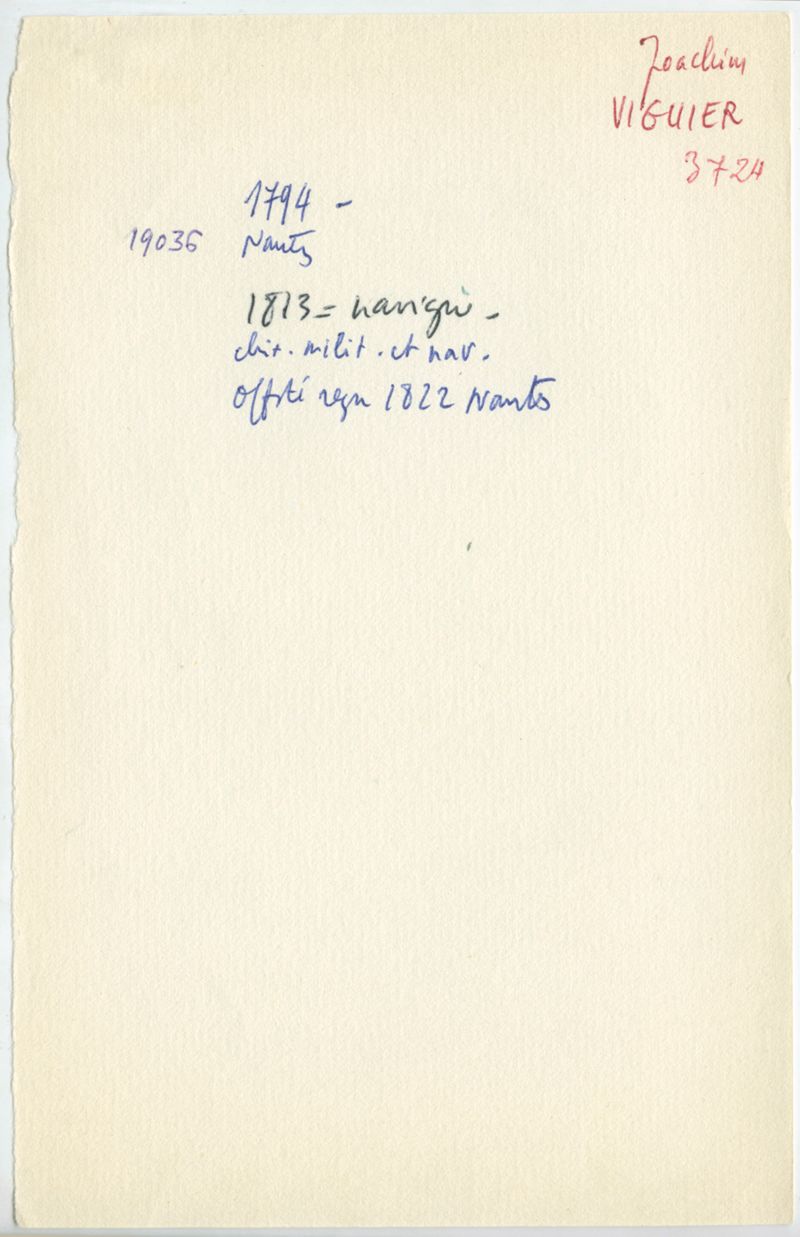 Joachim
VIGUIER
3724
1794 -
19036 Nantes
1813 = navigué -
chir. milit. et nav.
offsté reçu 1822 Nantes